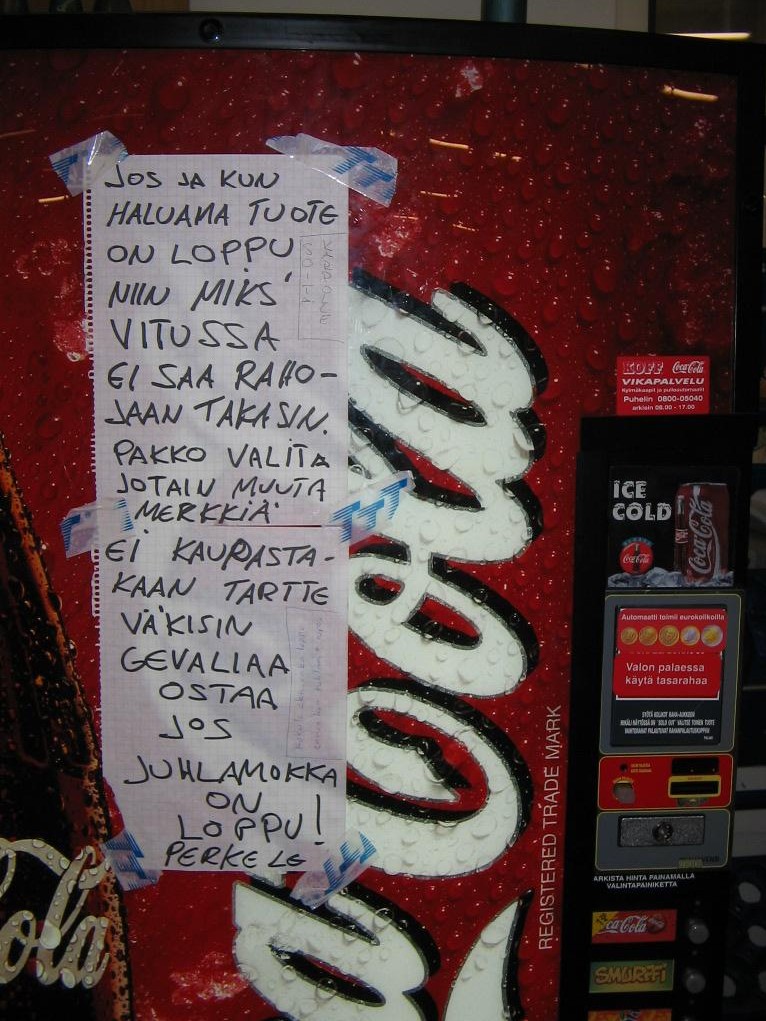 JOS JA KUN
HALUAMA TUOTE
ON LOPPU
NIIN MIKS'
VITUSSA
EI SAA RAHO-
JAAN TAKASIN.
PAKKO VALITA
JOTAIN MUUTA
MERKKIÄ
EI KAUPASTA-
KAAN TARTTE
VÄKISIN
GEVALIAA
OSTAA
JOS
JUHLAMOKKA
ON
LOPPU!
PERKELE
Coca
ola
REGISTERED TRADE MARK
KOFF Coca-Cola
VIKAPALVELU
Kylmäkaapit ja pulloautomaatit
Puhelin 0800-05040
arkisin 08.00 - 17.00
ICE
COLD
Coca-Cola
Automaatti toimii eurokolikoilla
Valon palaessa
käytä tasarahaa
SYÖTÄ KOLIKOT RAHA-AUKKOON
MIKÄLI NÄYTÖSSÄ ON "SOLD OUT" VALITSE TOINEN TUOTE
RAHANPALAUTUSKUPPIIN
ARKISTA HINTA PAINAMALLA
VALINTAPAINIKETTA
Coca-Cola
SMURFFI